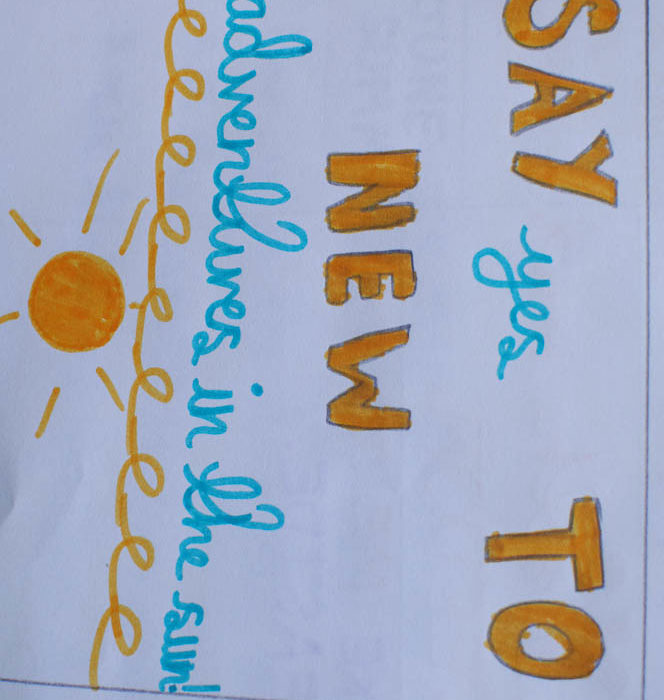 SAY yes TO
NEW
adventures in the sun!